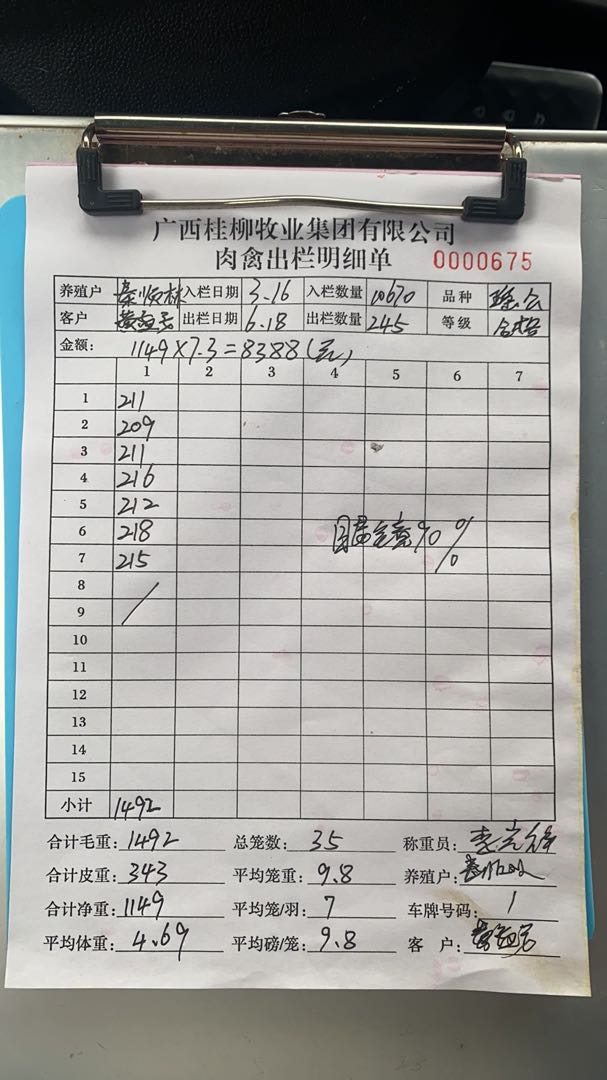 广西桂柳牧业集团有限公司
肉禽出栏明细单 0000675
养殖户 秦顺林 入栏日期 3.16 入栏数量 10670 品种
客户 出栏日期 6.18 出栏数量 245 等级 合格
金额: 1149×7.3=8388(元)
1 2 3 4 5 6 7
1 211
2 209
3 211
4 216
5 212
6 218 90%
7 215
8
9
10
11
12
13
14
15
小计 1492
合计毛重: 1492 总笼数: 35 称重员:
合计皮重: 343 平均笼重: 9.8 养殖户:
合计净重: 1149 平均笼/羽: 7 车牌号码: 1
平均体重: 4.69 平均磅/笼: 9.8 客 户: